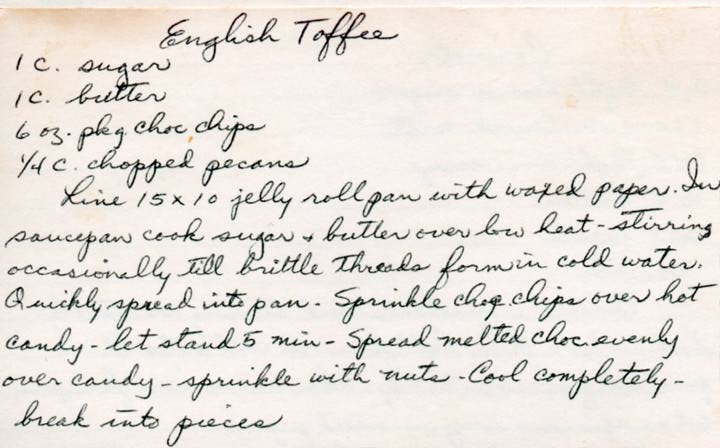 English Toffee
1 c. sugar
1 c. butter
6 oz. pkg choc chips
1/4 c. chopped pecans
Line 15 x 10 jelly roll pan with waxed paper. In
saucepan cook sugar + butter over low heat - stirring
occasionally till brittle threads form in cold water.
Quickly spread into pan - Sprinkle choc chips over hot
candy - let stand 5 min - Spread melted choc evenly
over candy - sprinkle with nuts - Cool completely -
break into pieces